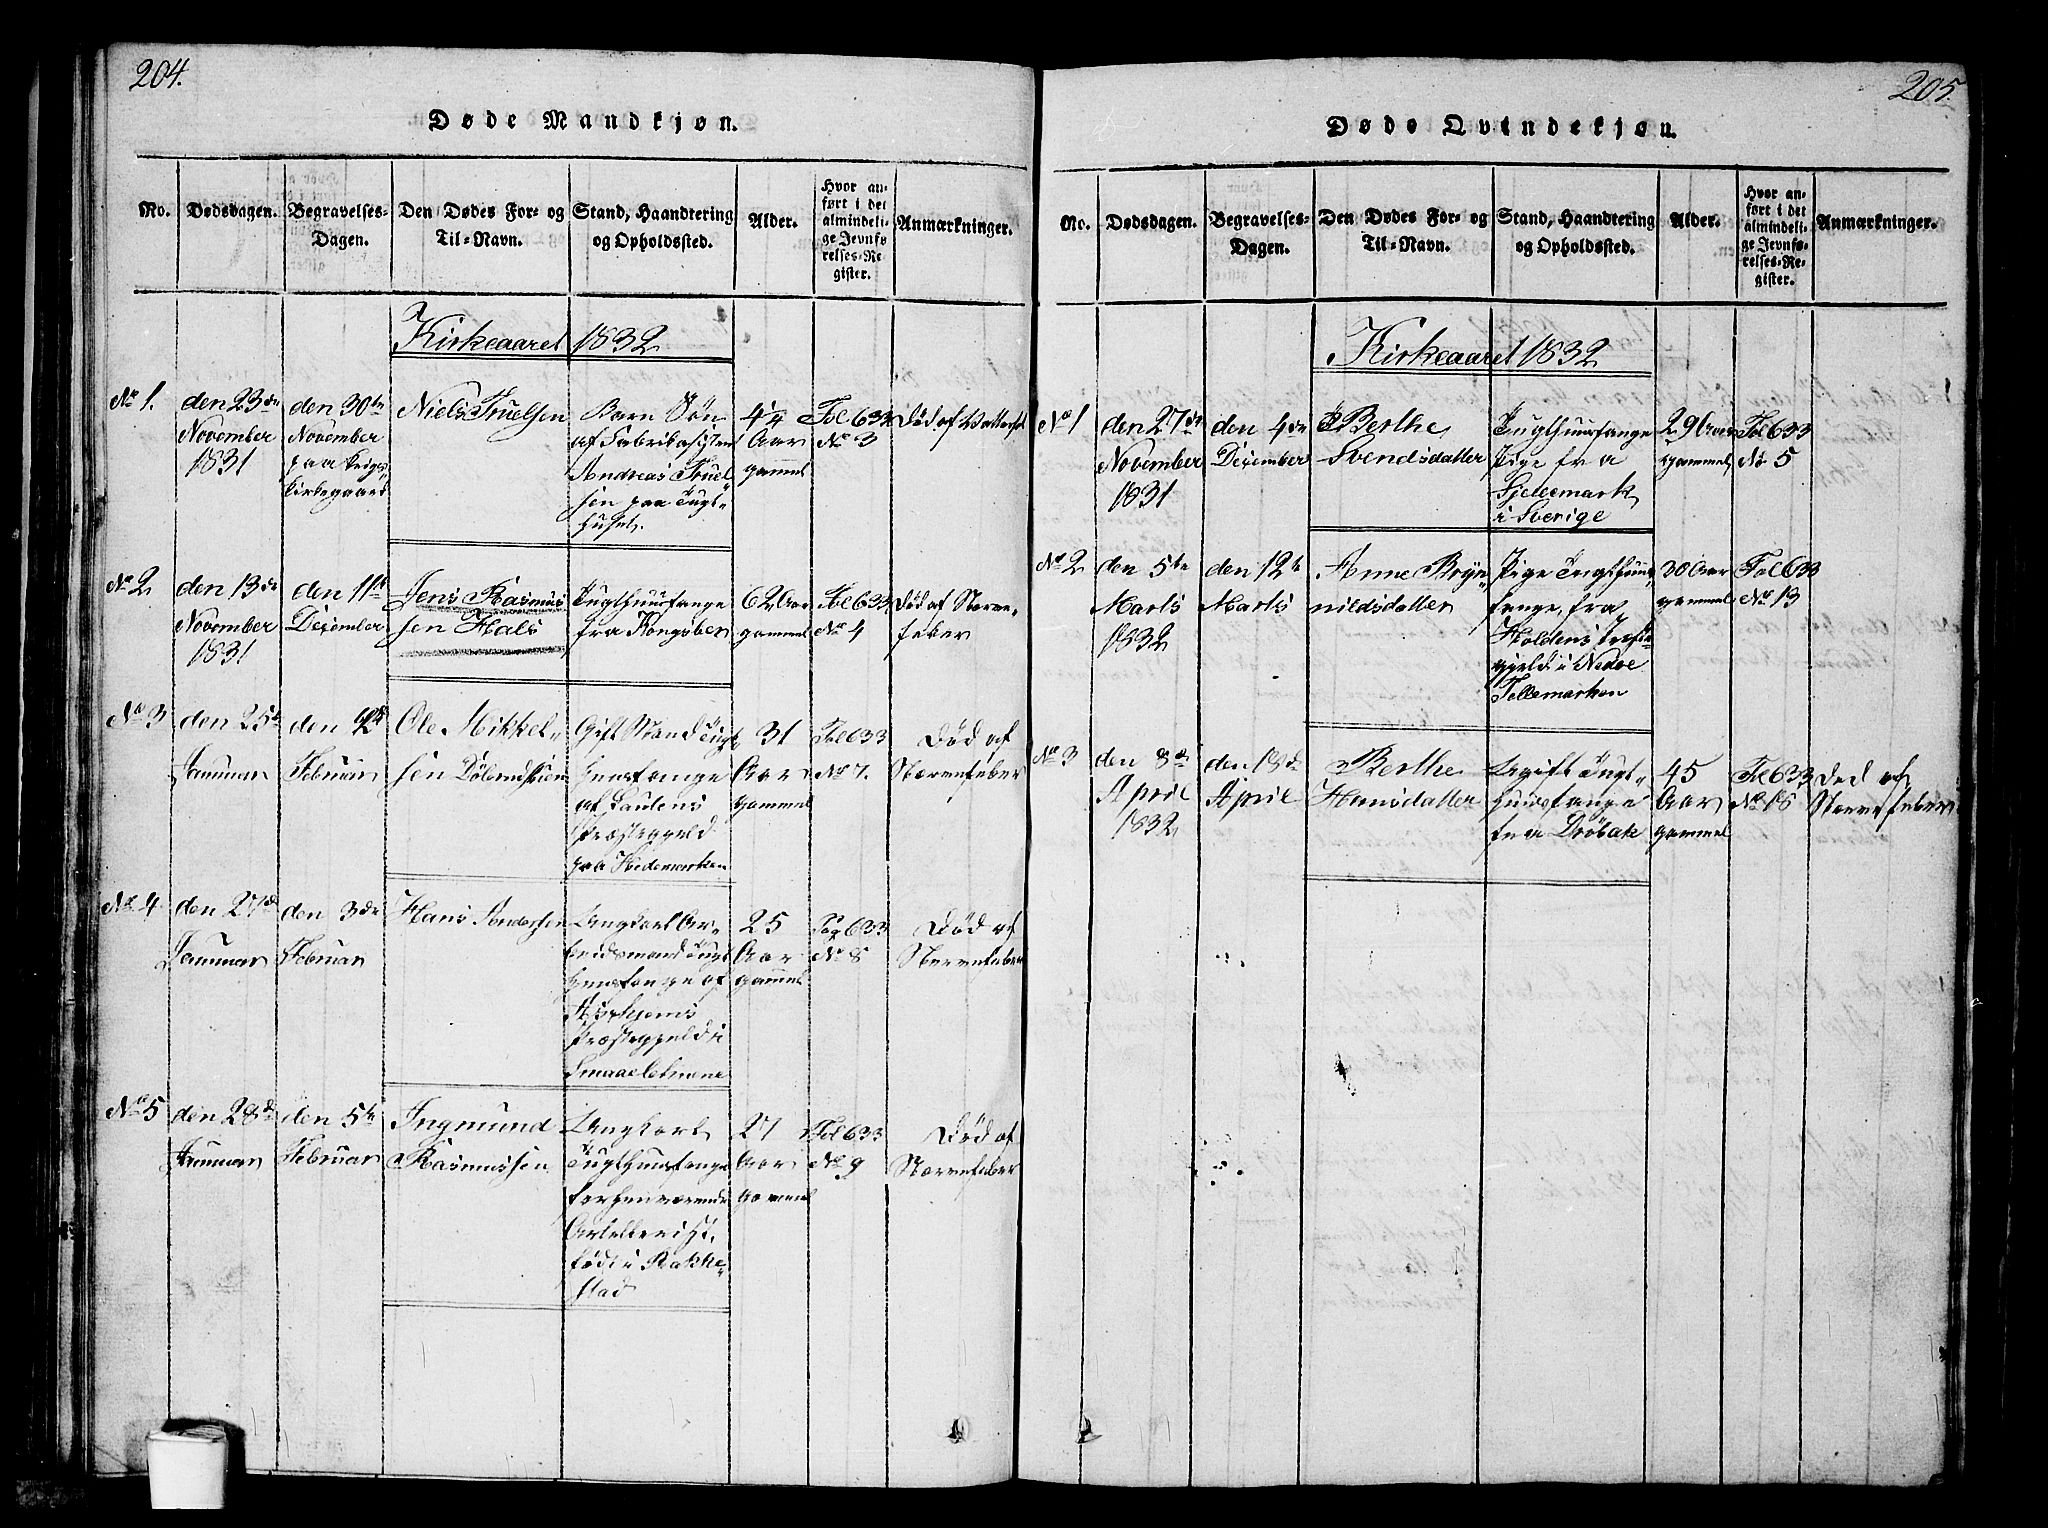 204.
Døde Mandkjøn.
No.
Dødsdagen.
Begravelses-
Dagen.
Den Dødes For- og
Til-Navn.
Stand, Haandtering
og Opholdssted.
Alder.
Hvor an-
ført i det
almindeli-
ge Jevnfø-
relses-Re-
gister.
Anmærkninger.
Kirkeaaret 1832
No 1.
den 23de
November
1831
den 30te
November
paa
Kirkegaard
Niels Truelsen
Barn Søn
af Fabrikasisten
Andreas Truel-
sen paa Tugt-
huset.
4 1/4
Aar
gammel
Fol 633
No 3
Død af
No 2
den 13de
November
1831
den 11te
December
Jens Rasmus
sen Hals
Tugthuusfange
fra Kongsberg
62 Aar
gammel
Fol 633
No 4
Død af Nerve-
feber
No 3
den 25de
Januar
den 2de
Februar
Ole Mikkel-
sen
Gift Mand Tugt-
huusfange
af Løutens
Præstegjeld
paa Hedemarken
31
Aar
gammel
Fol 633
No 7.
Død af
Nervefeber
No 4
den 27de
Januar
den 3die
Februar
Hans Andersen
Ungkarl Ar-
beidsmand Tugt
huusfange af
Præstegjeld i
Smaalehnene
25
Aar
gammel
Pag 633
No 8
Død af
Nervefeber
No 5
den 28de
Januar
den 5te
Februar
Ingmund
Rasmussen
Ungkarl
Tugthuusfange
forhenværende
Artellerist,
født i Rakke-
stad
27
Aar
gammel
Fol 633
No 9
Død af
Nervefeber
205.
Døde Qvindekjøn.
No.
Dødsdagen.
Begravelses-
Dagen.
Den Dødes For- og
Til-Navn.
Stand, Haandtering
og Opholdssted.
Alder.
Hvor an-
ført i det
almindeli-
ge Jevnfø-
relses-Re-
gister.
Anmærkninger.
Kirkeaaret 1832
No 1
den 27de
November
1831
den 4de
December
Berthe
Svendsdatter
Tugthuusfange
Pige fra
i Sverige
29 Aar
gammel
Fol 633
No 5
No 2
den 5te
Marts
1832
den 12te
Marts
Anne Bryn-
nildsdatter
Pige Tugthuus-
fange, fra
Holdens Præste-
gjeld i Nedre
Tellemarken
30 Aar
gammel
Fol 633
No 13
No 3
den 8de
April
1832
den 18de
April
Berthe
Hansdatter
Ugift Tugt-
huusfange
fra Drøbak
45
Aar
gammel
Fol 633
No 18
Død af
Nervefeber